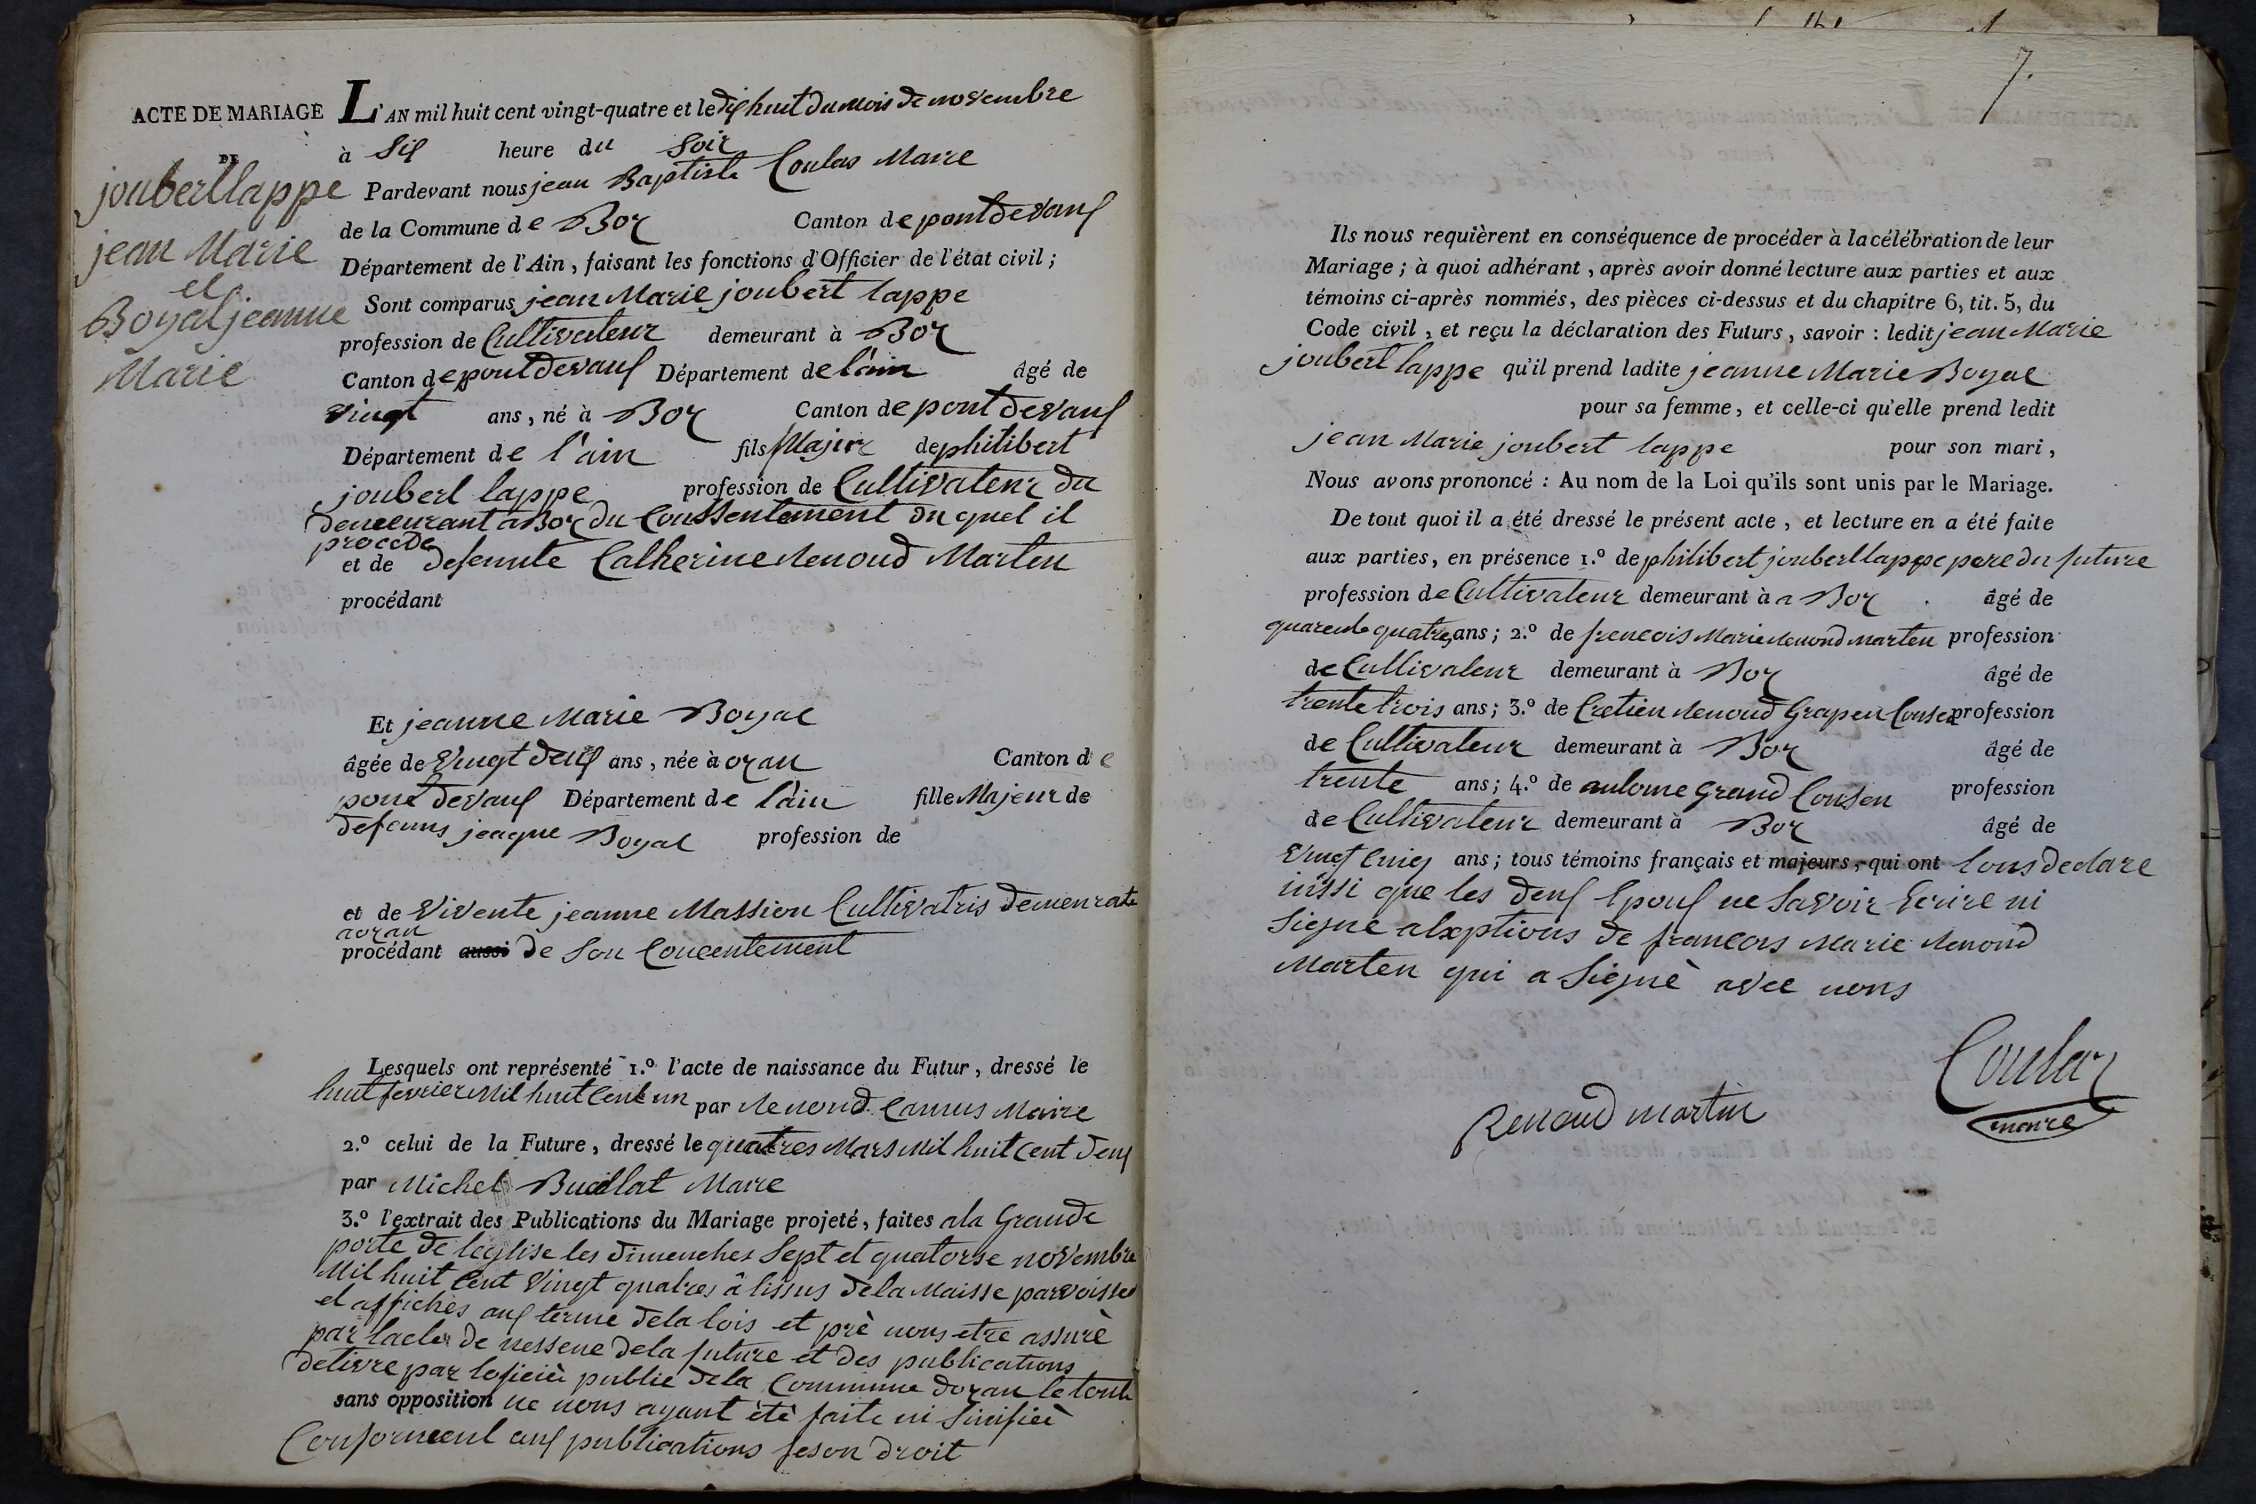 ACTE DE MARIAGE
DE
joubert lappe
jean Marie
et
Boyat jeanne
Marie
L'AN mil huit cent vingt-quatre et le dix huit du mois de novembre
à Six heure du Soir
Pardevant nous jean Baptiste Coulas Maire
de la Commune de Boz Canton de pont devaux
Département de l'Ain, faisant les fonctions d'Officier de l'état civil;
Sont comparus jean Marie joubert lappe
profession de Cultivateur demeurant à Boz
Canton de pont devaux Département de lain âgé de
vingt ans, né à Boz Canton de pont devaux
Département de l'ain fils Majeur de philibert
joubert lappe profession de Cultivateur du
demeurant a Boz du Conssentement du quel il
procede
et de defunte Catherine Renoud Marten
procédant
Et jeanne Marie Boyat
âgée de vingt deux ans, née à ozan Canton de
pont devaux Département de lain fille Majeur de
defuns jeaque Boyat profession de
et de vivente jeanne Massion Cultivatris demeurate
aozan
procédant aussi de Son Concentement
Lesquels ont représenté 1.º l'acte de naissance du Futur, dressé le
huit fevrier Mil huit Cent un par Renoud Camus Maire
2.º celui de la Future, dressé le quatres Mars Mil huit Cent deux
par Michel Buallat Maire
3.º l'extrait des Publications du Mariage projeté, faites ala Grande
porte de leglise les dimenches Sept et quatorse novembre
Mil huit Cent vingt quatres â lissus dela Maisse parvoisse
et affichés aux terme dela lois et prè nous etre assurè
par lacte de nessene dela future et des publications
delivre par loficiè publie dela Commune dozan le tout
sans opposition ne nous ayant étè faite ni Sinifieè
Conforment aux publications feson droit
7.
Ils nous requièrent en conséquence de procéder à la célébration de leur
Mariage; à quoi adhérant, après avoir donné lecture aux parties et aux
témoins ci-après nommés, des pièces ci-dessus et du chapitre 6, tit. 5, du
Code civil, et reçu la déclaration des Futurs, savoir: ledit jean Marie
joubert lappe qu'il prend ladite jeanne Marie Boyat
pour sa femme, et celle-ci qu'elle prend ledit
jean Marie joubert lappe pour son mari,
Nous avons prononcé: Au nom de la Loi qu'ils sont unis par le Mariage.
De tout quoi il a été dressé le présent acte, et lecture en a été faite
aux parties, en présence 1.º de philibert joubert lappe pere du future
profession de Cultivateur demeurant à a Boz âgé de
quarente quatres ans; 2.º de frencois Marie Renoud Marten profession
de Cultivateur demeurant à Boz âgé de
trente trois ans; 3.º de Cretien Renoud Grapen profession
de Cultivateur demeurant à Boz âgé de
trente ans; 4.º de antoine Grand Consen profession
de Cultivateur demeurant à Boz âgé de
vingt Cinq ans; tous témoins français et majeurs, qui ont tous declare
inssi que les deux Epoux ne Savoir Ecrire ni
Signe alxptions de francois Marie Renoud
Marten qui a Signè avec nous
Coulas
maire
Renoud martin